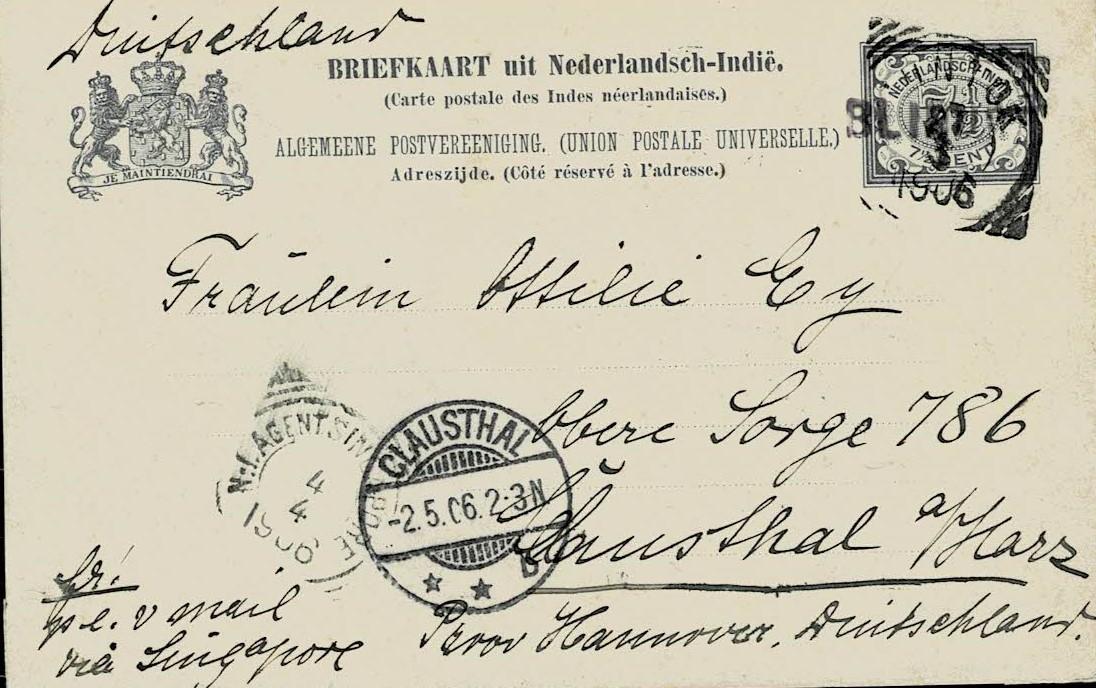 Deutschland
BRIEFKAART uit Nederlandsch-Indië.
(Carte postale des Indes néerlandaises.)
ALGEMEENE POSTVEREENIGING. (UNION POSTALE UNIVERSELLE.)
Adreszijde. (Côté réservé à l'adresse.)
JE MAINTIENDRAI
NEDERLANDSCH-INDIË
7½
CENT
1906
Fräulein Ottilie Ey
Obere Sorge 786
Clausthal a/Harz
Prov Hannover. Deutschland.
N.I. AGENT SINGAPORE
4
4
1906
CLAUSTHAL
-2.5.06.2-3N
* * b
p e. v mail
via Singapore